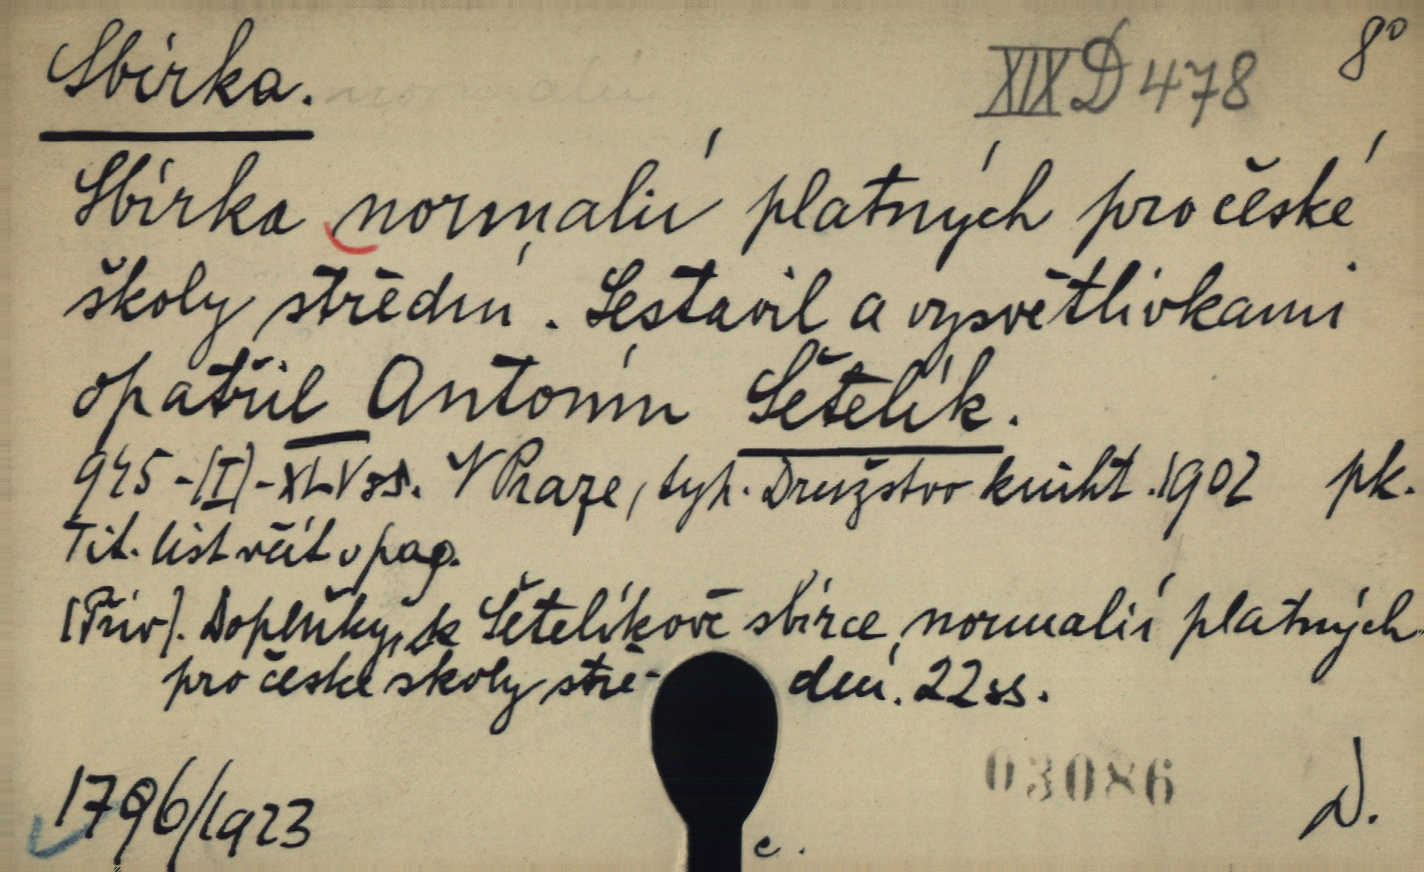 Sbírka. normalií XIX D 478 8°
Sbírka normalií platných pro české
školy střední. Sestavil a vysvětlivkami
opatřil Antonín Šetelík.
945-[I]-XLV ss. V Praze, typ. Družstvo kniht. 1902 pk.
Tit. list včít v pag.
[Přiv]. Doplňky k Šetelíkově sbírce normalií platných
pro české školy stře- dní. 22 ss.
03086
1796/1923 D.
c.